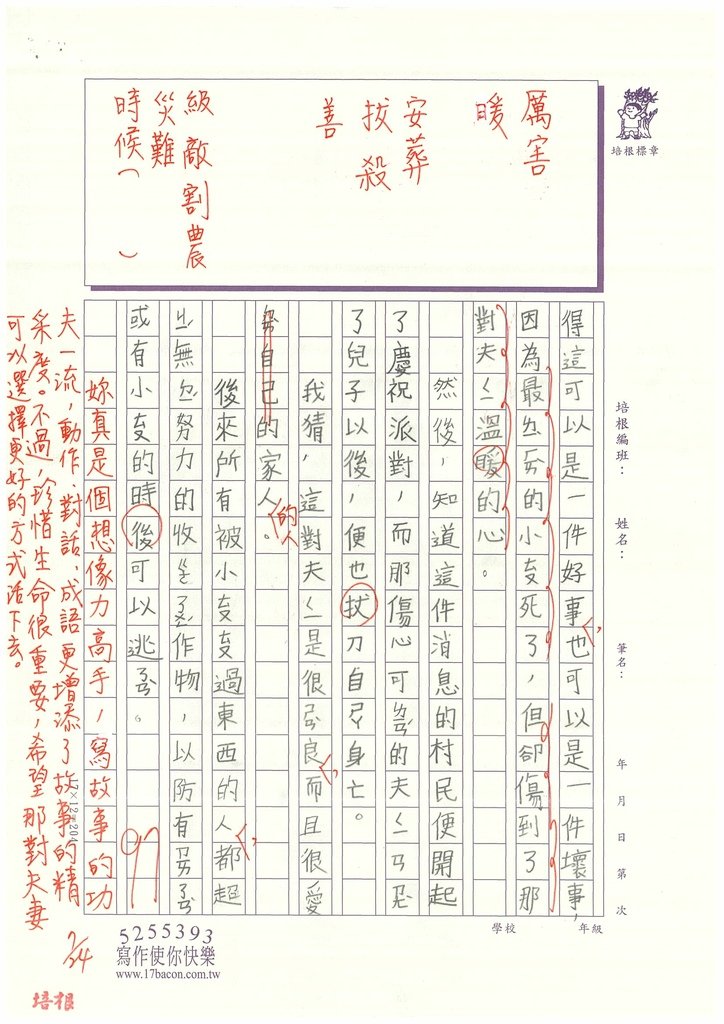 厲害
暖
安葬
拔殺
善
級敵割農
災難
時候( )
培根標章
培根編班：
姓名：
筆名：
年 月 日 第 次
得這可以是一件好事也可以是一件壞事，
因為最ㄓㄞ的小友死了，但卻傷到了那
對夫ㄑ溫暖的心。
然後，知道這件消息的村民便開起
了慶祝派對，而那傷心可
的夫ㄑㄢ
了兒子以後，便也拔刀自ㄕ身亡。
我猜，這對夫ㄑ是很
良而且很愛
自己的家人。
的人
後來所有被小友友過東西的人都超
ㄓ無
努力的收
作物，以防有
或有小友的時後可以逃
。
97
妳真是個想像力高手，寫故事的功
夫一流，動作、對話、成語更增添了故事的精
采度。不過，珍惜生命很重要，希望那對夫妻
可以選擇更好的方式活下去。
7×12=204
7/24
5255393
寫作使你快樂
www.17bacon.com.tw
學校
年級
培根